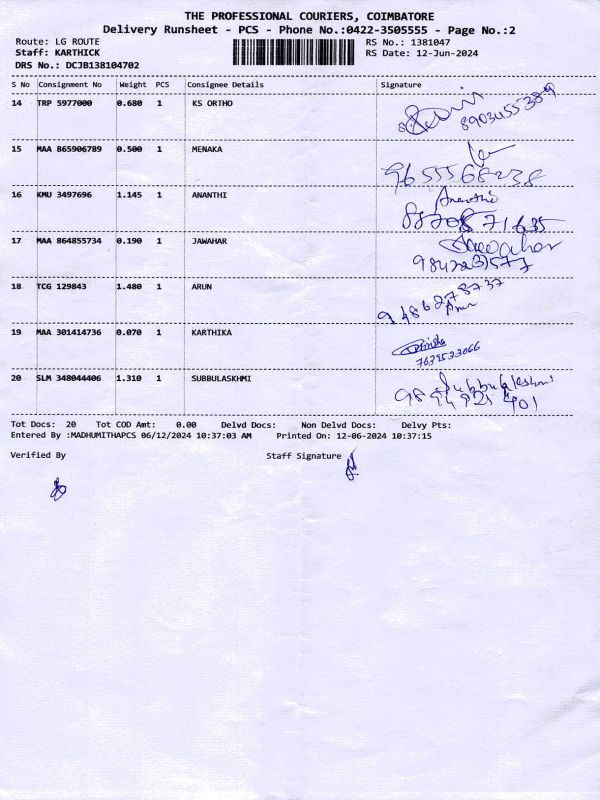 THE PROFESSIONAL COURIERS, COIMBATORE
Delivery Runsheet - PCS - Phone No.:0422-3505555 - Page No.:2
Route: LG ROUTE RS No.: 1381047
Staff: KARTHICK RS Date: 12-Jun-2024
DRS No.: DCJB138104702
S No Consignment No Weight PCS Consignee Details Signature
14 TRP 5977000 0.680 1 KS ORTHO
8903455389
15 MAA 865906789 0.500 1 MENAKA
9655568238
16 KMU 3497696 1.145 1 ANANTHI Ananthi
17 MAA 864855734 0.190 1 JAWAHAR Jawahar
18 TCG 129843 1.480 1 ARUN
9486278737
Arun
19 MAA 301414736 0.070 1 KARTHIKA
20 SLM 348044406 1.310 1 SUBBULASKHMI Subbulakshmi
Tot Docs: 20 Tot COD Amt: 0.00 Delvd Docs: Non Delvd Docs: Delvy Pts:
Entered By :MADHUMITHAPCS 06/12/2024 10:37:03 AM Printed On: 12-06-2024 10:37:15
Verified By Staff Signature